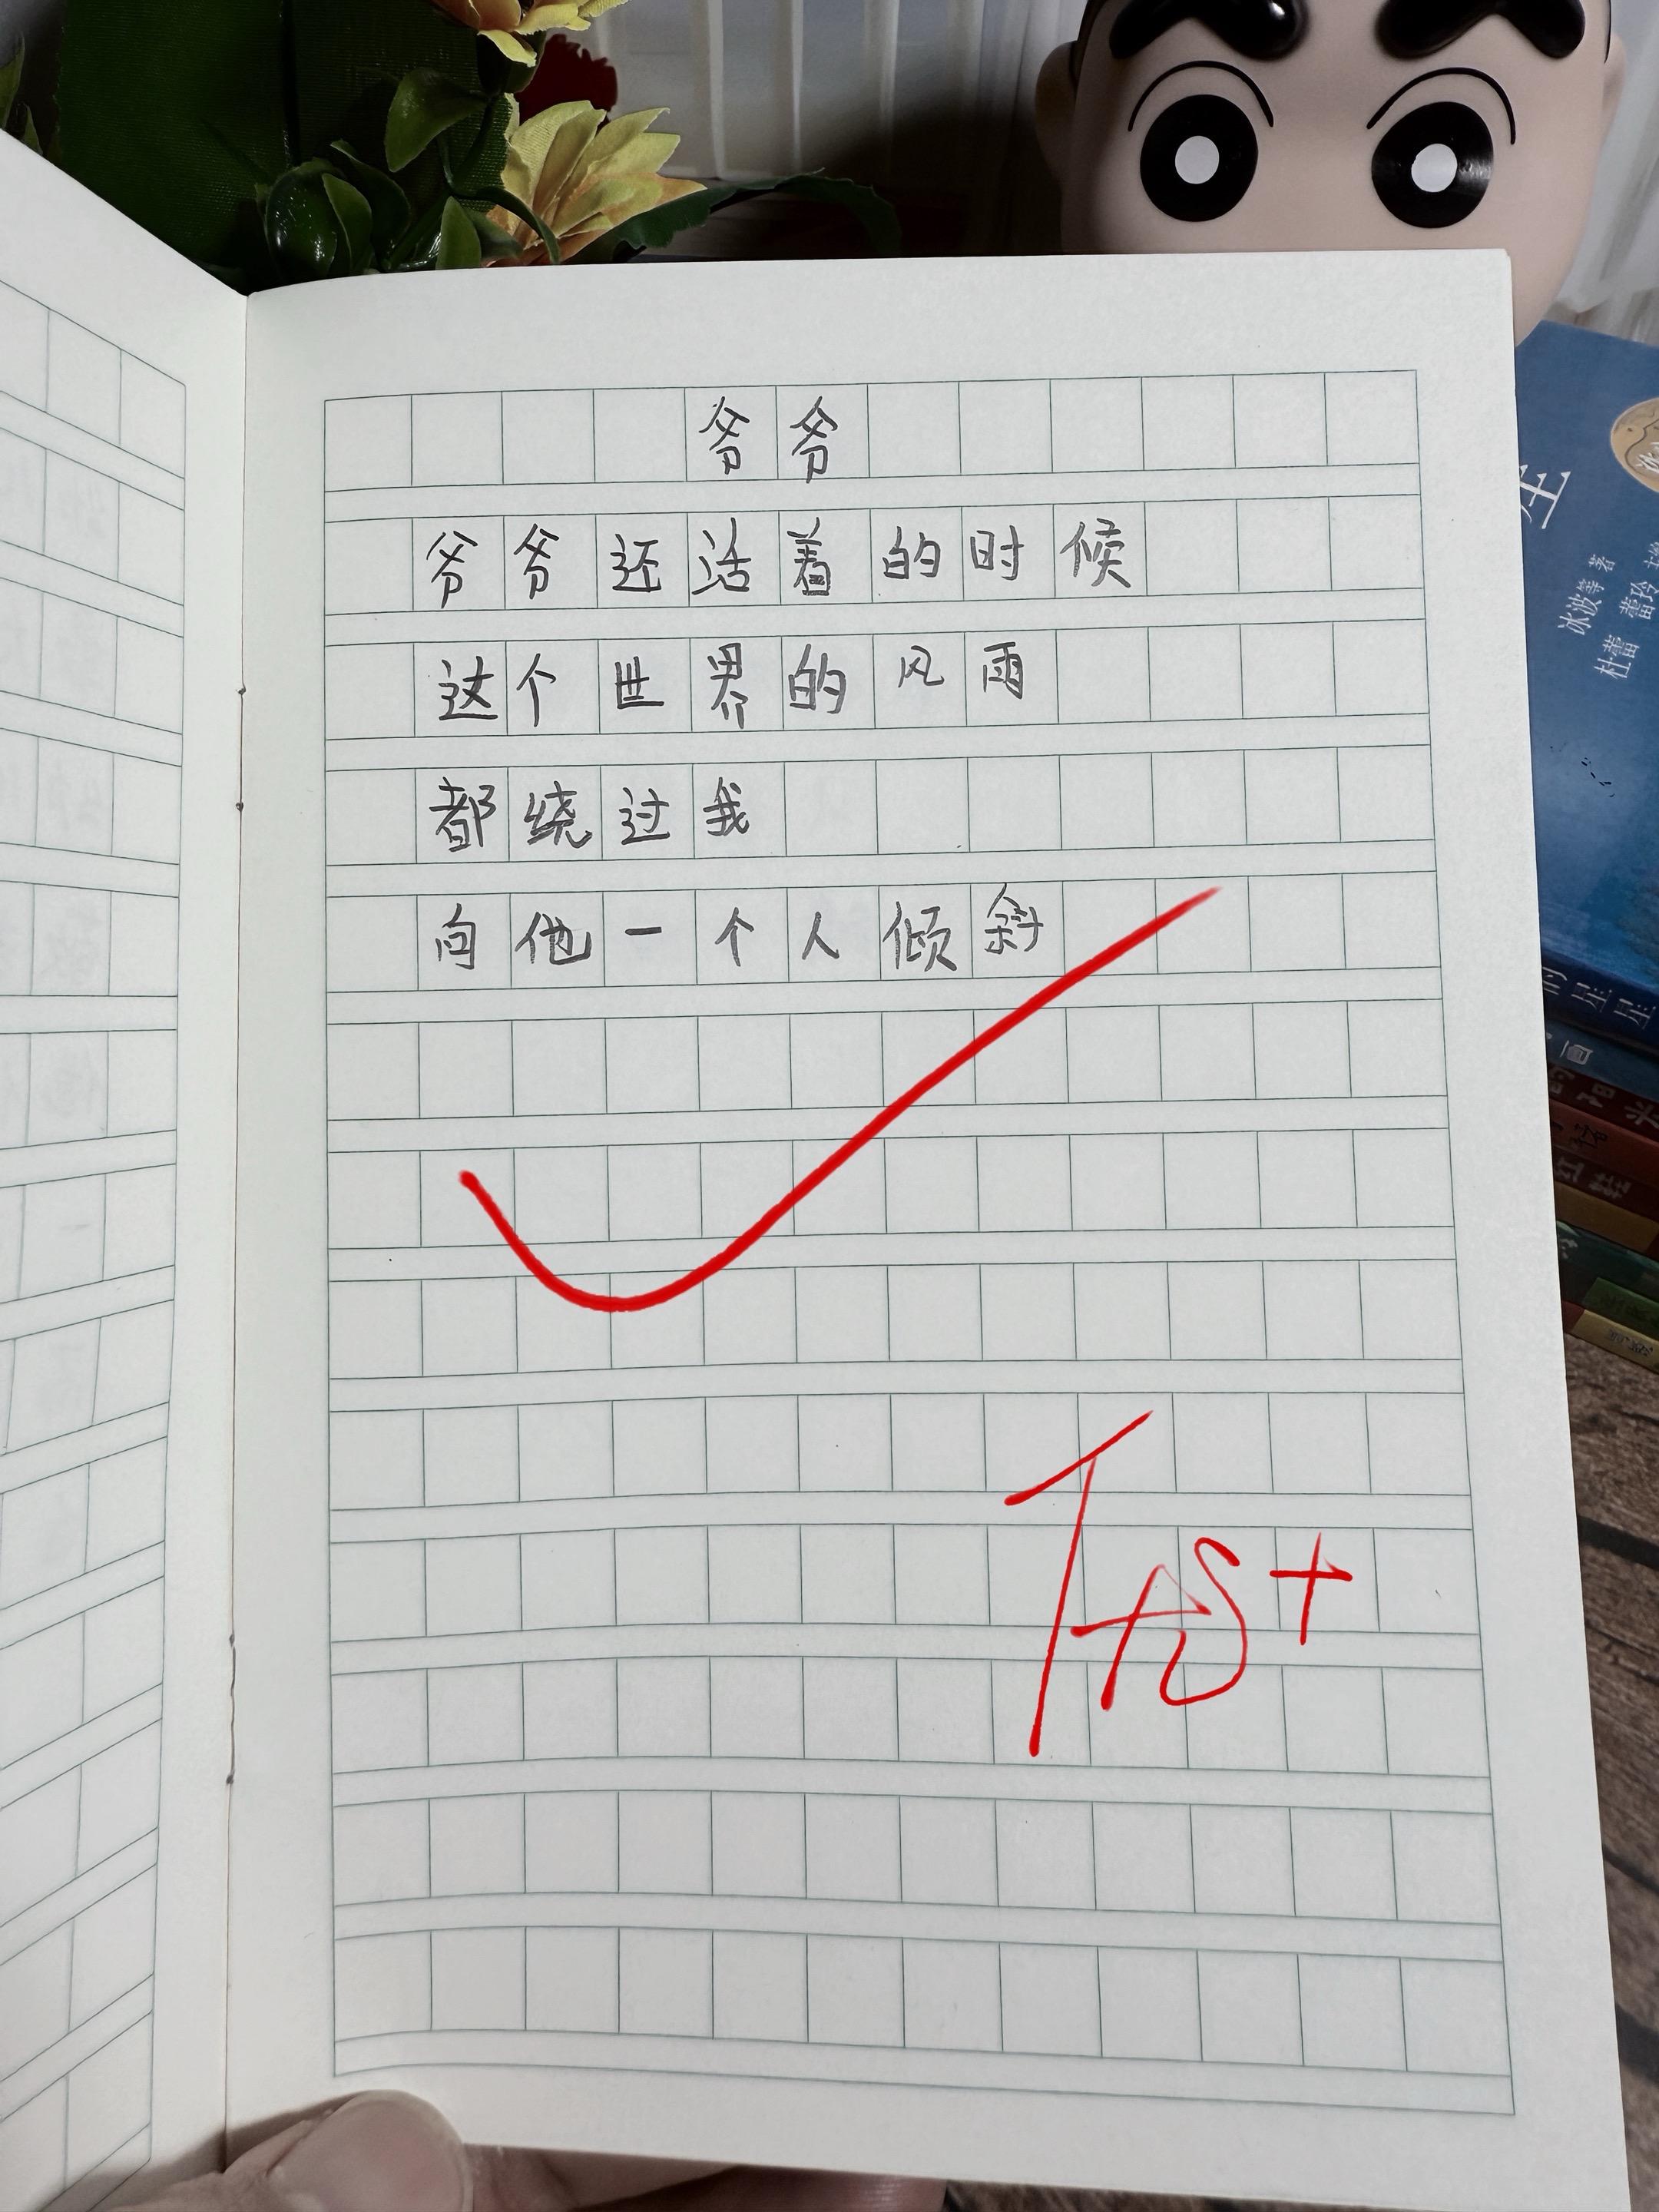 爷爷
爷爷还活着的时候
这个世界的风雨
都绕过我
向他一个人倾斜
冰波等 著
杜蕾 蕾玲
的星星